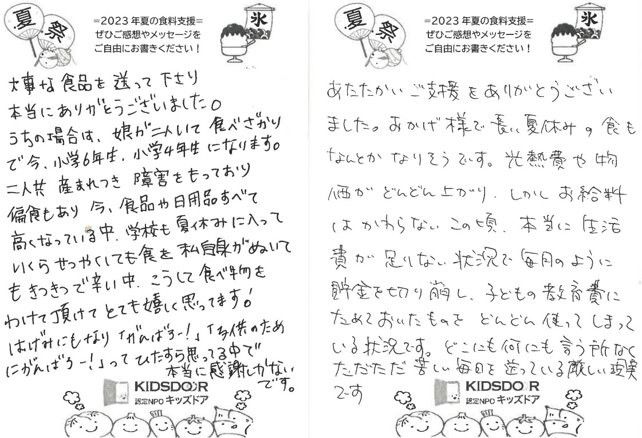 夏祭
氷
=2023年夏の食料支援=
ぜひご感想やメッセージを
ご自由にお書きください！
大事な食品を送って下さり
本当にありがとうございました。
うちの場合は、娘が二人いて食べざかり
で今、小学6年生、小学4年生になります。
二人共産まれつき障害をもっており
偏食もあり今、食品や日用品すべて
高くなっている中、学校も夏休みに入って
いくらせっやくしても食を私自身がぬいて
もきつきつで辛い中、こうして食べ物を
わけて頂けてとても嬉しく思ってます!
はげみにもなり「がんばろー!」「子供のため
にがんばろー!」ってひたすら思ってる中で
本当に感謝しかない
です。
KIDSDOOR
認定NPO キッズドア
夏祭
氷
=2023年夏の食料支援=
ぜひご感想やメッセージを
ご自由にお書きください！
あたたかいご支援をありがとうござい
ました。おかげ様で長い夏休みの食も
なんとかなりそうです。光熱費や物
価がどんどん上がり、しかしお給料
はかわらないこの頃、本当に生活
費が足りない状況で毎月のように
貯金を切り崩し、子どもの教育費に
ためておいたものをどんどん使ってしまって
いる状況です。どこにも何にも言う所なく
ただただ苦しい毎日を送っている厳しい現実
です
KIDSDOOR
認定NPO キッズドア